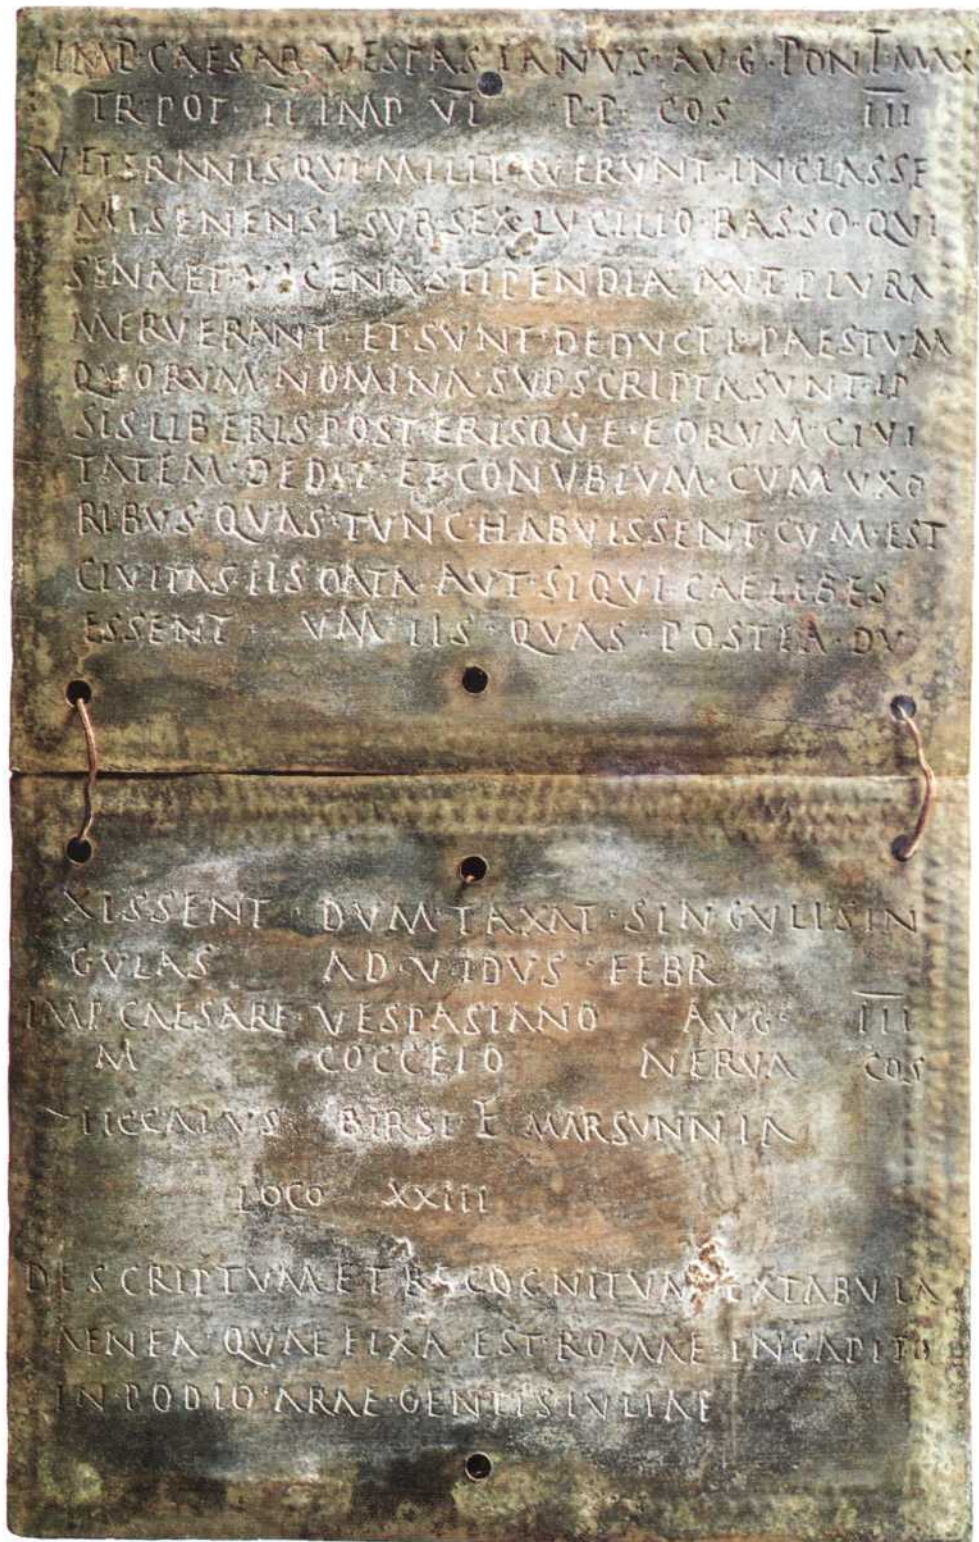 IMP·CAESAR·VESPASIANVS·AUG·PONT·MAX
TR·POT II IMP VI P·P· COS III
VETERANIS QVI MILITAVERVNT·IN CLASSE
MISENENSI·SVB·SEX·LVCILIO·BASSO·QVI
SENA ET VICENA STIPENDIA·AVT·PLVRA
MERVERANT·ET SVNT·DEDVCTI·PAESTVM
QVORVM·NOMINA·SVPSCRIPTA SVNT·IP
SIS LIBERIS POSTERISQVE·EORVM·CIVI
TATEM·DEDIT·ET·CONVBIVM·CVM·VXO
RIBVS QVAS·TVNC HABVISSENT·CVM·EST
CIVITAS IIS DATA·AVT·SIQVI CAELIBES
ESSENT VM IIS QVAS·POSTEA·DV
XISSENT·DVM·TAXAT·SINGVLI SIN
GVLAS AD·V IDVS·FEBR
IMP·CAESARE·VESPASIANO AVG III
M COCCEIO NERVA COS
BIRSI F MARSVNNIA
LOCO XXIII
DESCRIPTVM ET RECOGNITVM EX TABVLA
AENEA·QVAE FIXA·EST·ROMAE·IN CAPITO
IN PODIO·ARAE·GENTIS IVLIAE